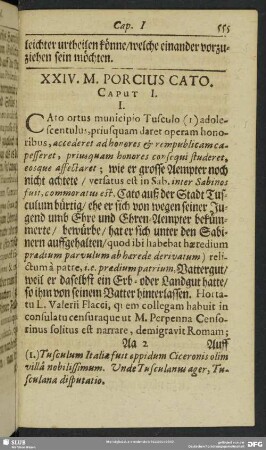 Cap. I 555
leichter urtheilen könne/welche einander vorzu-
ziehen sein möchten.
XXIV. M. PORCIUS CATO.
CAPUT I.
I.
CAto ortus municipio Tusculo (1) adole-
scentulus, priusquam daret operam hono-
ribus, accederet ad honores & rempublicam ca-
pesseret, priusquam honores consequi studeret,
eosque affectaret; wie er grosse Aempter noch
nicht achtete / versatus est in Sab. inter Sabinos
fuit, commoratus est. Cato auß der Stadt Tus-
culum bürtig/ ehe er sich von wegen seiner Ju-
gend umb Ehre und Ehren-Aempter beküm-
merte/ bewürbe/ hat er sich unter den Sabi-
nern auffgehalten/ quod ibi habebat hæredium
prædium parvulum ab hærede derivatum) reli-
ctum à patre, i.e. prædium patrium. Vattergut/
weil er daselbst ein Erb- oder Landgut hatte/
so ihm von seinem Vatter hinterlassen. Horta-
tu L. Valerii Flacci, quem collegam habuit in
consulatu censuraque ut M. Perpenna Censo-
rinus solitus est narrare, demigravit Romam;
Aa 2 Auff
(1.) Tusculum Italiæ fuit oppidum Ciceronis olim
villâ nobilissimum. Unde Tusculanus ager, Tu-
sculana disputatio.
SLUB
DFG